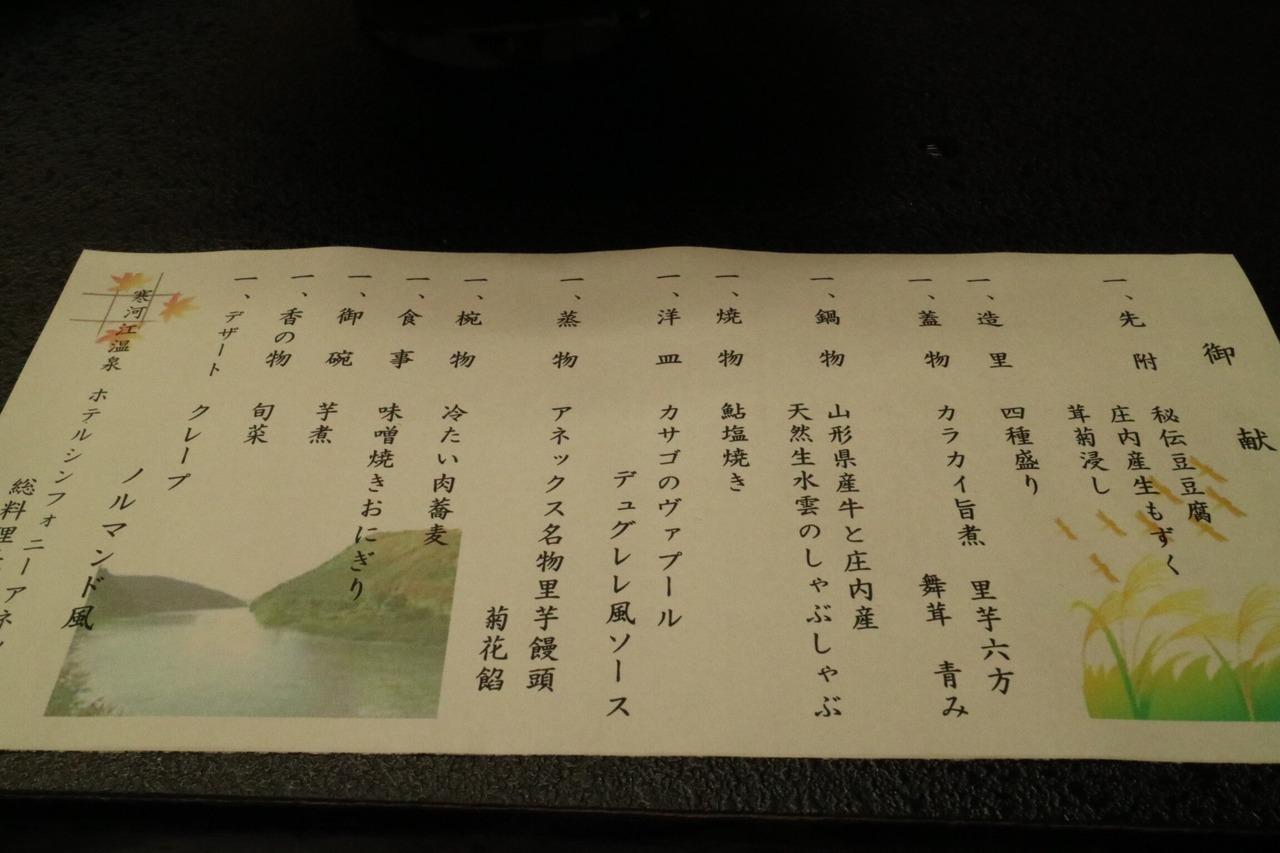 御献
一、先附 秘伝豆豆腐
庄内産生もずく
茸菊浸し
一、造里 四種盛り
一、蓋物 カラカイ旨煮 里芋六方
舞茸 青み
一、鍋物 山形県産牛と庄内産
天然生水雲のしゃぶしゃぶ
一、焼物 鮎塩焼き
一、洋皿 カサゴのヴァプール
デュグレレ風ソース
一、蒸物 アネックス名物里芋饅頭
菊花餡
一、椀物 冷たい肉蕎麦
一、食事 味噌焼きおにぎり
一、御碗 芋煮
一、香の物 旬菜
一、デザート クレープ
ノルマンド風
寒河江温泉 ホテルシンフォニーアネッ
総料理